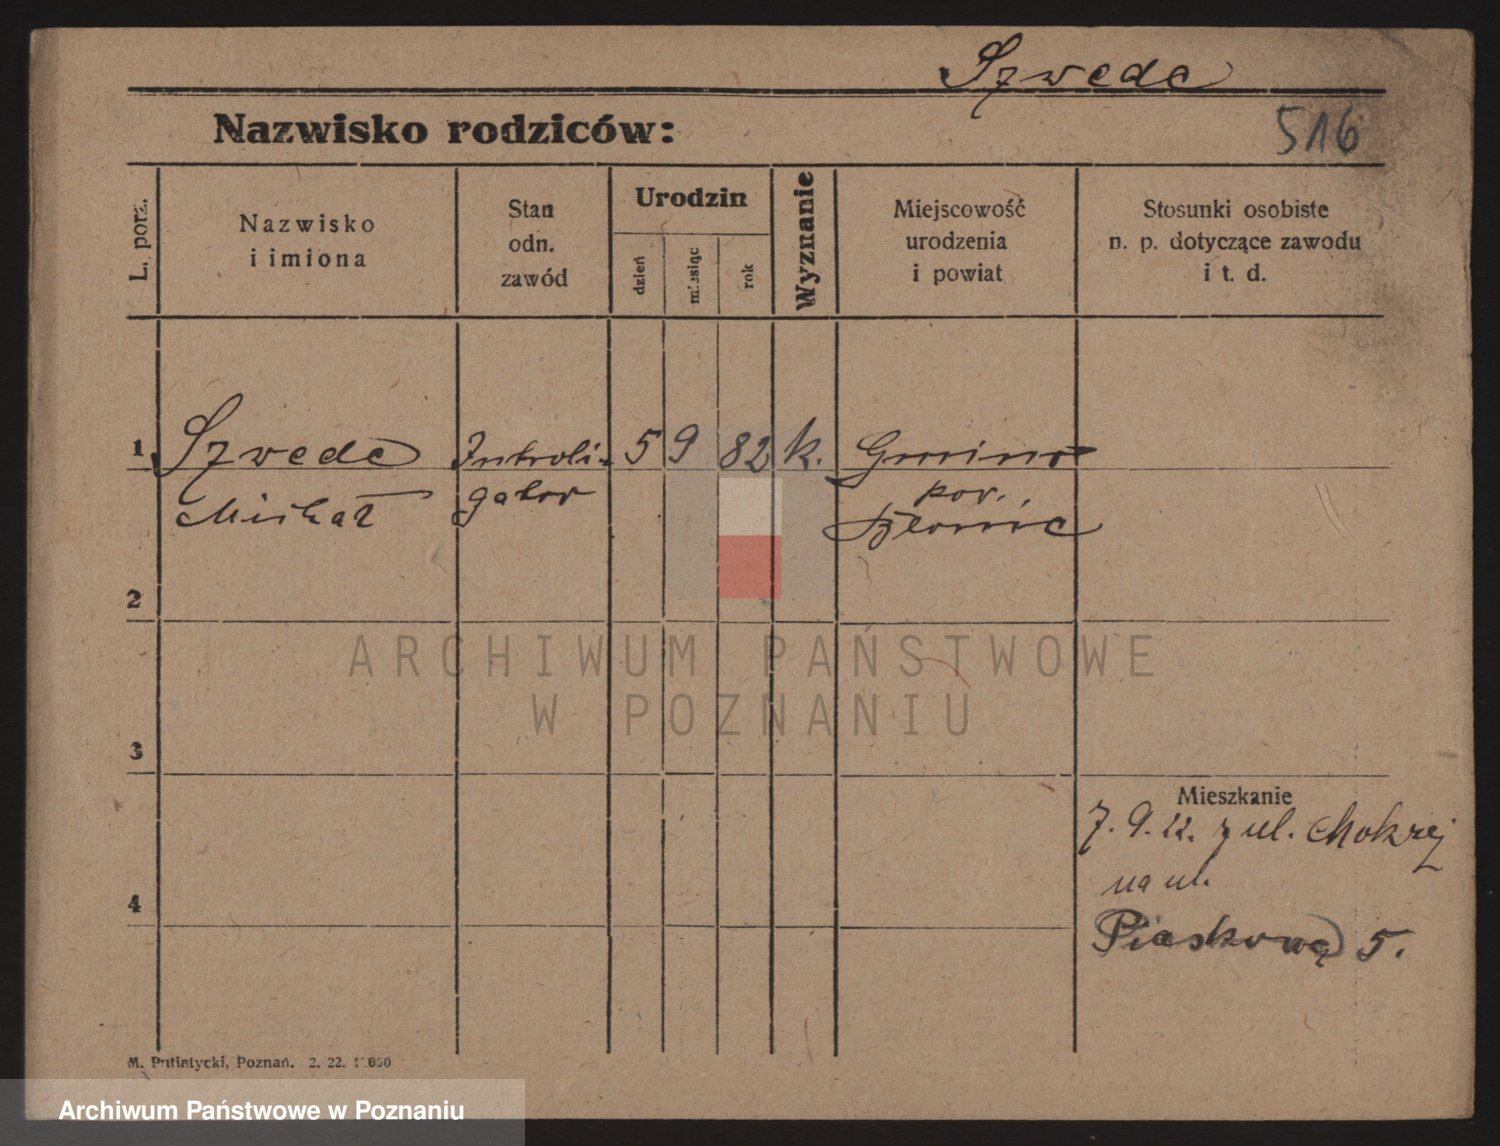 Szweda
Nazwisko rodziców:
516
L. porz.
Nazwisko
i imiona
Stan
odn.
zawód
Urodzin
dzień
miesiąc
rok
Wyznanie
Miejscowość
urodzenia
i powiat
Stosunki osobiste
n. p. dotyczące zawodu
i t. d.
1 Szweda Introli- 5 9 82 k.
Michał gator
pow.
2
3
4
Mieszkanie
7. 9. 22. z ul. Mokrej
na ul.
Piaskową 5.
M. Putiatycki, Poznań. 2. 22.
ARCHIWUM PAŃSTWOWE
W POZNANIU
Archiwum Państwowe w Poznaniu